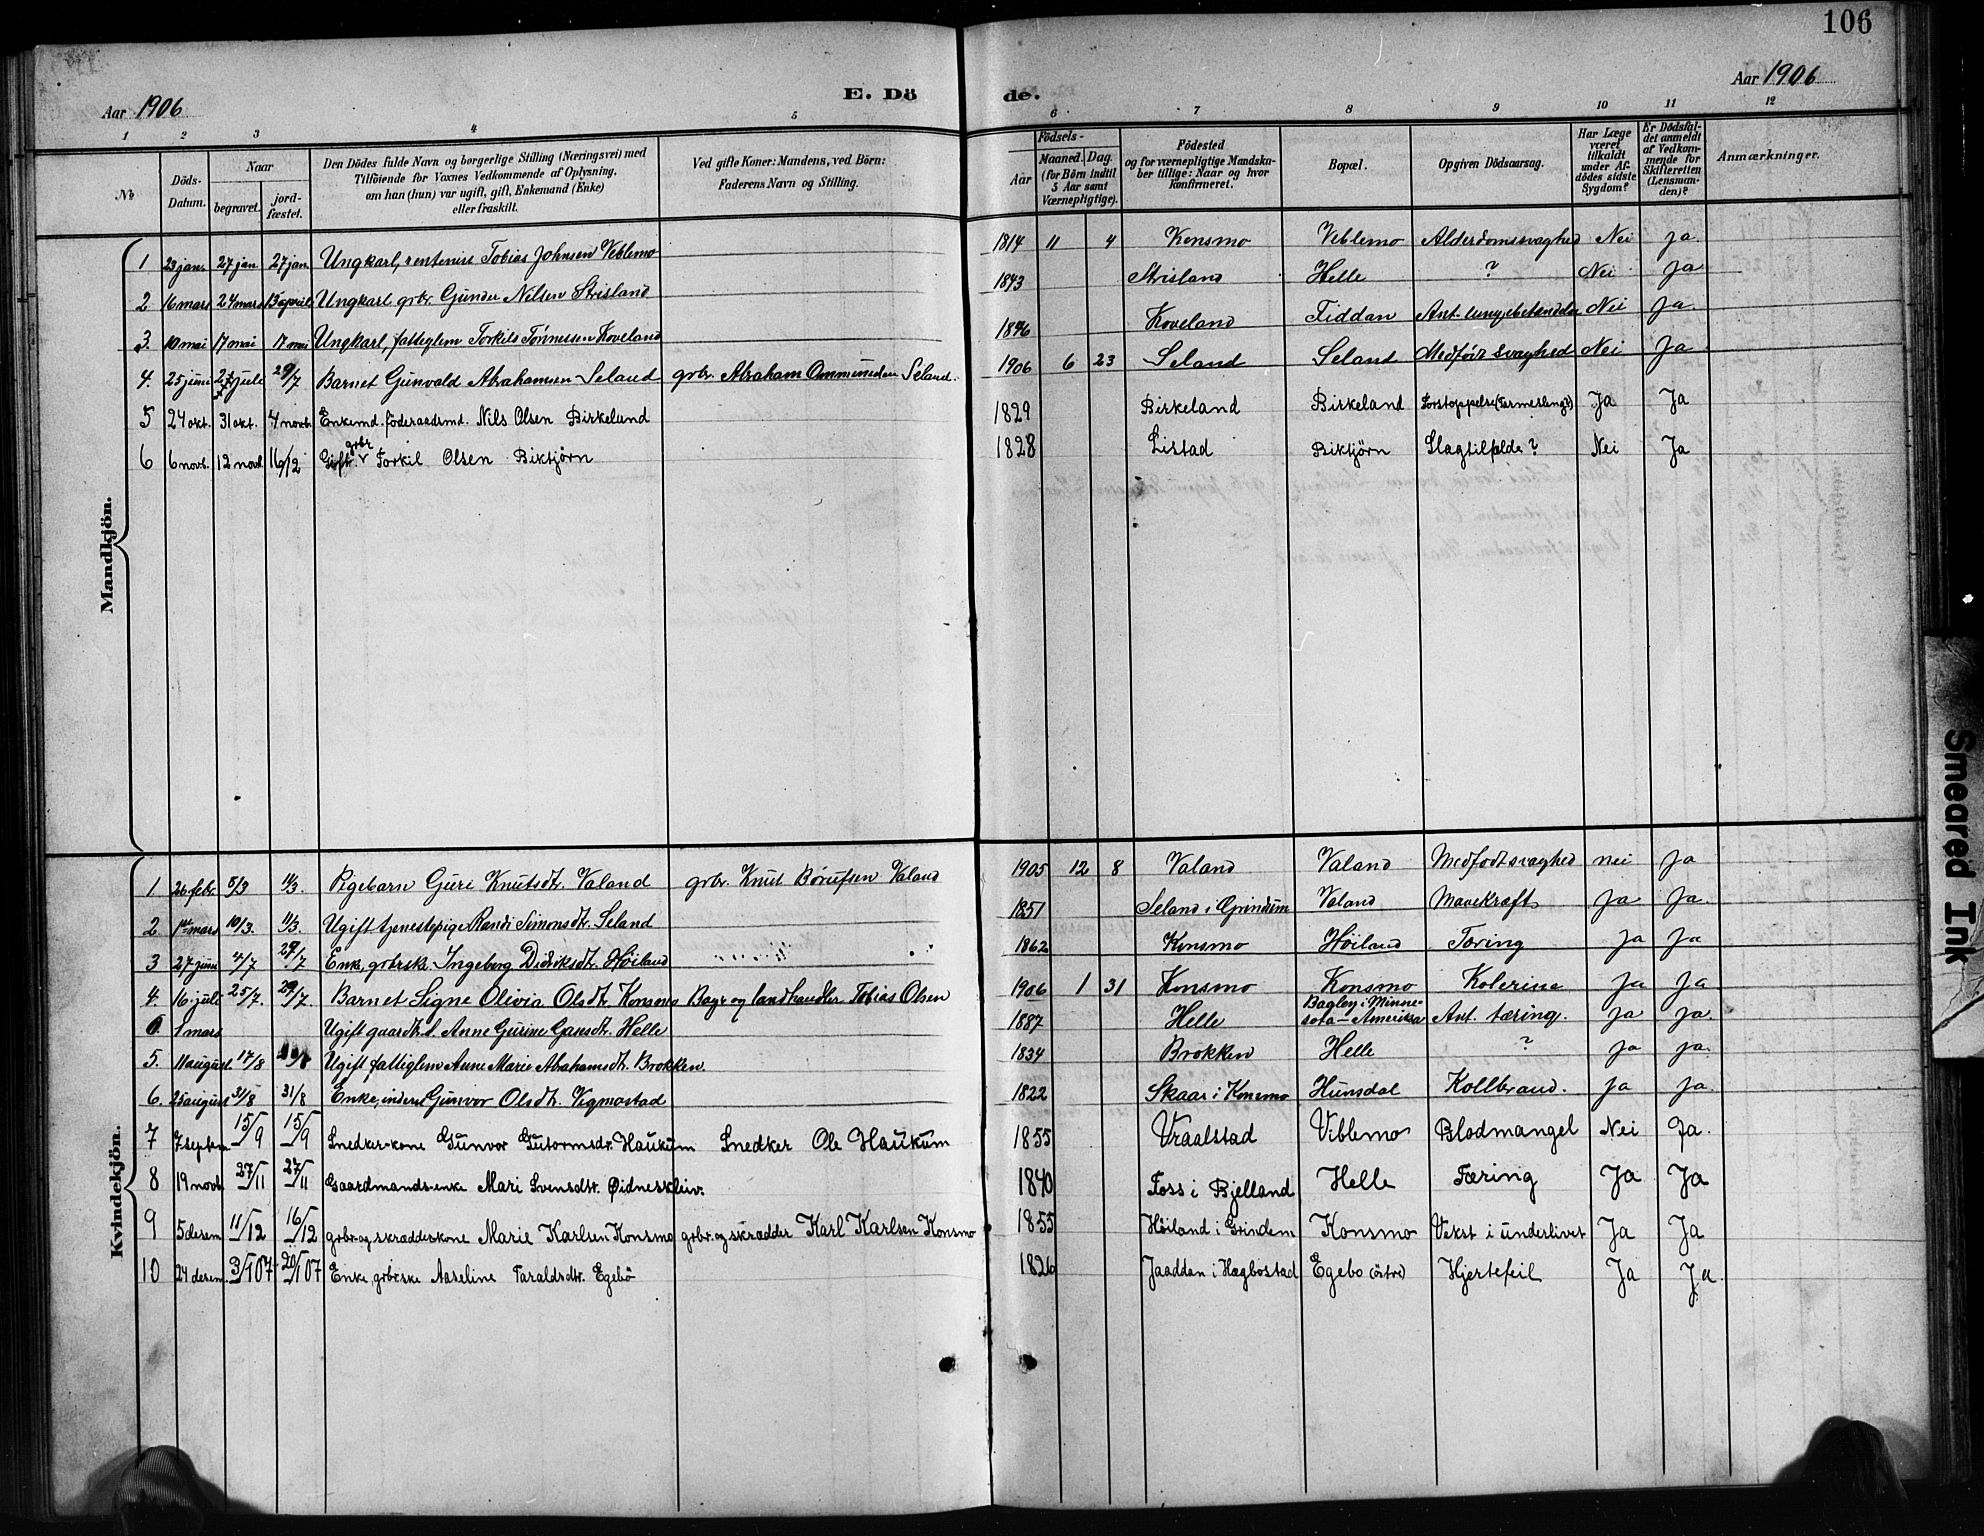 106
Aar 1906 E. Dö de. Aar 1906
1 2 3 4 5 6 7 8 9 10 11 12
№ Döds-Datum. Naar begravet. jordfæstet. Den Dödes fulde Navn og borgerlige Stilling (Næringsvei) med Tilföiende for Voxnes Vedkommende af Oplysning, om han (hun) var ugift, gift, Enkemand (Enke) eller fraskilt. Ved gifte Koner: Mandens, ved Börn: Faderens Navn og Stilling. Födsels- Aar Maaned. Dag. (for Börn indtil 5 Aar samt Værnepligtige). Födested og for værnepligtige Mandskaber tillige: Naar og hvor konfirmeret. Bopæl. Opgiven Dödsaarsag. Har Læge været tilkaldt under Afdödes sidste Sygdom? Er Dödsfaldet anmeldt af Vedkommende for Skifteretten (Lensmanden)? Anmærkninger.
Mandkjön.
1 23 jan. 27 jan 27 jan. Ungkarl, rentenist Tobias Johnsen Veblemo 1814 11 4 Konsmo Veblemo Alderdomssvaghed Nei ja.
2 16 mars 24 mars 13 april Ungkarl grbr. Gunder Nilsen Strisland 1843 Strisland Helle ? Nei ja
3. 10 mai 17 mai 17 mai Ungkarl, fattiglem Torkils Tønnessen Koveland 1846 Koveland Fiddan Ant. lungebetændelse Nei ja.
4. 25 juni juli 29/7 Barnet Gunvald Abrahamsen Seland grbr. Abraham Ommundsen Seland. 1906 6 23 Seland Seland Medført svaghed Nei ja
5 24 okt. 31 okt. 4 novb. Enkemd. föderaadsmd. Nils Olsen Birkeland 1829 Birkeland Birkeland Forstoppelse (Tarmeslyng?) Ja Ja
6 6 novb. 12 novb. 16/12 Gift grbr Torkil Olsen Biktjörn 1828 Listad Biktjörn Slagtilfelde? Nei Ja
Kvindekjön.
1 26 febr. 5/3 11/3. Pigebarn Guri Knutsdt. Valand grbr. Knut Børufsen Valand 1905 12 8 Valand Valand Medfødt svaghed nei ja
2 1ste mars 10/3. 11/3. Ugift tjenestepige Randi Simonsdt. Seland 1851 Seland i Grindum Valand Mavekræft ja ja.
3 27 juni 4/7 29/7 Enke, grbrsk. Ingeborg Didriksdt. Høiland 1862 Konsmo Høiland Tæring ja ja
4. 16 juli 25/7. 29/7. Barnet Signe Olivia Olsdt. Konsmo Bager og landhandler Tobias Olsen 1906 1 31 Konsmo Konsmo Kolerine ja ja
0. 1 mars Ugift gaardt. Anne Gurine Gansdt. Helle 1887 Helle Bagley i Minnesota - Amerika Ant. tæring. ja ja.
5. 11 august 17/8 Ugift fattiglem Anne Marie Abrahamsdt. Brokken. 1834 Brokken Helle ? ja ja.
6. 25 august 31/8 31/8 Enke, inderst Gunvor Olsdt. Vigmostad 1822 Skaar i Konsmo Hunsdal Kollbrand. ja ja.
7 7 septem 15/9 15/9 Snedker-kone Gunvor Gutormsdr. Haukum Snedker Ole Haukum 1855 Vraalstad Viblemo Blodmangel Nei Ja.
8 19 novb. 27/11 27/11 Gaardmands-enke Mari Svensdtr. Øidneskleiv. 1840 Foss i Bjelland Helle Tæring Ja Ja
9 5 desem 11/12 16/12 grbr. og skrædderkone Marie Karlsen Konsmo grbr. og skrædder Karl Karlsen Konsmo 1855 Höiland i Grindem Konsmo Vekst i underlivet Ja Ja
10 24 desem. 3/1 07 20/1 07 Enke, grbrske Aaseline Taraldsdtr. Egebö 1826 Jaaddan i Hægbostad Egebo (östre) Hjertefeil Ja Ja.
Smeared Ink